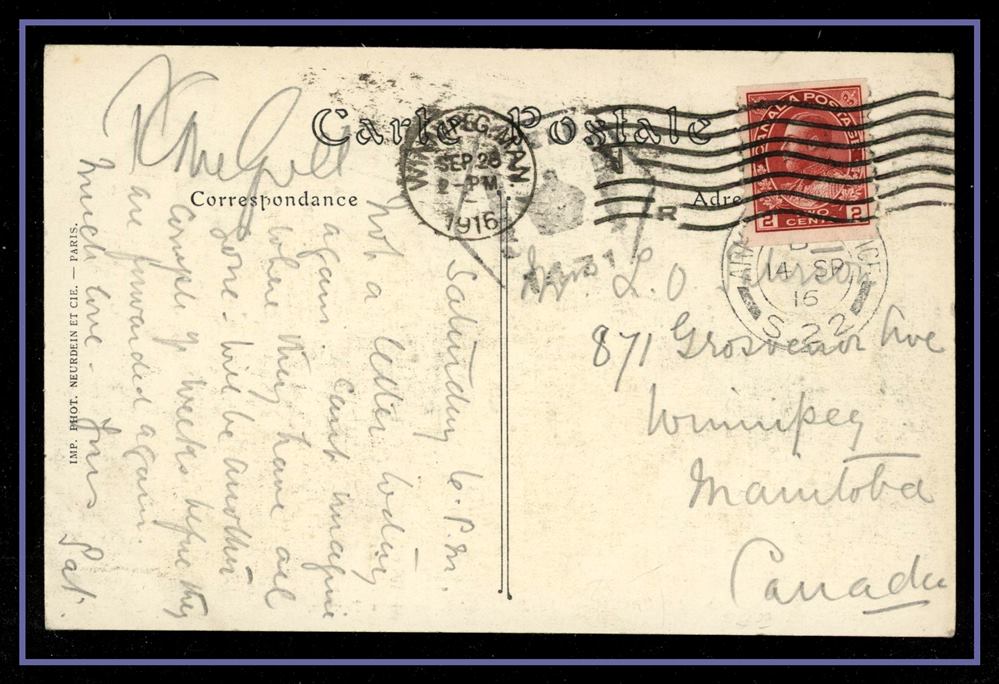 Carte Postale
Correspondance
Adre
WINNIPEG, MAN.
SEP 28
2 - PM
1916
CANADA POSTAGE
2 TWO CENTS 2
14 SP
16
S. 22
R
Saturday 6. P.M.
Not a letter today
again. Cant imagine
where they have all
gone. Will be another
couple of weeks before they
are forwarded again.
Much love - Yours Pat.
Mrs. L. O.
871 Grosvenor Ave
Winnipeg
Manitoba
Canada
IMP. PHOT. NEURDEIN ET CIE. — PARIS.